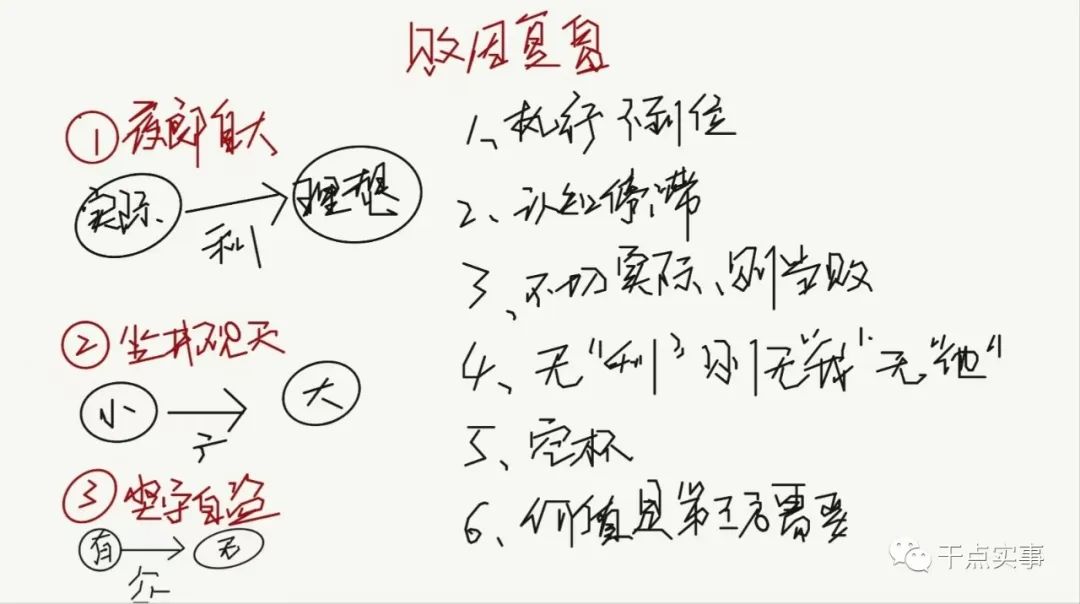 败因复盘
① 夜郎自大
实际 理想
利
② 坐井观天
小 大
③ 坚守自盗
有 无
1、执行不到位
2、认知停滞
3、不切实际、则当败
4、无“利”则无“我”无“他”
5、空杯
6、价值是第三方需要
干点实事